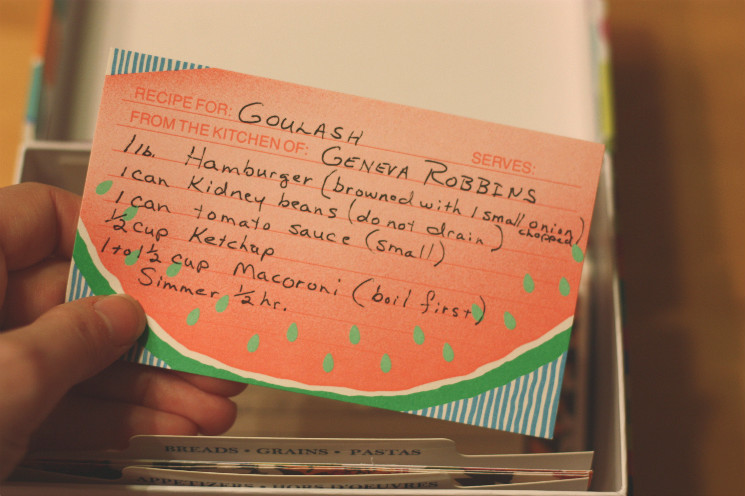 RECIPE FOR: GOULASH
FROM THE KITCHEN OF: GENEVA ROBBINS SERVES:
1 lb. Hamburger (browned with 1 small onion)
chopped
1 can Kidney beans (do not drain)
1 can tomato sauce (small)
½ cup Ketchup
1 to 1½ cup Macoroni (boil first)
Simmer ½ hr.
BREADS • GRAINS • PASTAS
APPETIZERS • HORS D'OEUVRES